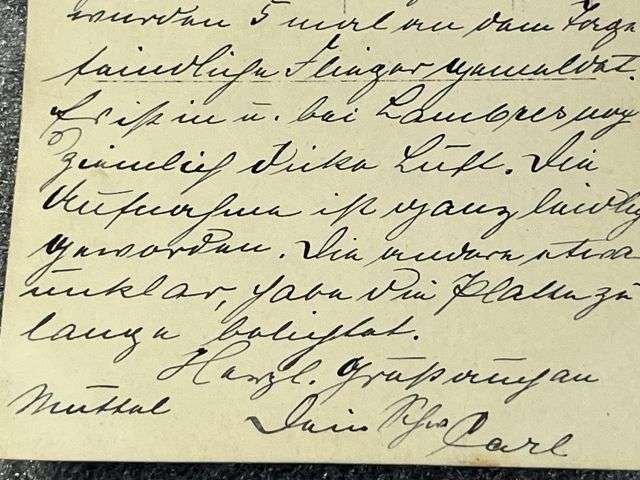 wurden 5 mal an dem Tage
feindliche Flieger gemeldet.
Es ist in u. bei Lambres noch
ziemlich dicke Luft. Die
Aufnahme ist ganz leidlich
geworden. Die andere etwas
unklar, habe die Platte zu
lange belichtet.
Herzl. Gruß auch an
Muttel Dein Carl